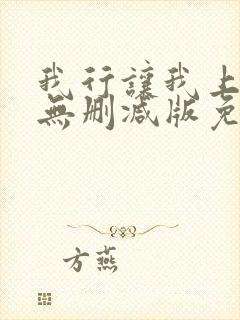 我行讓我上
無刪減版免
方燕